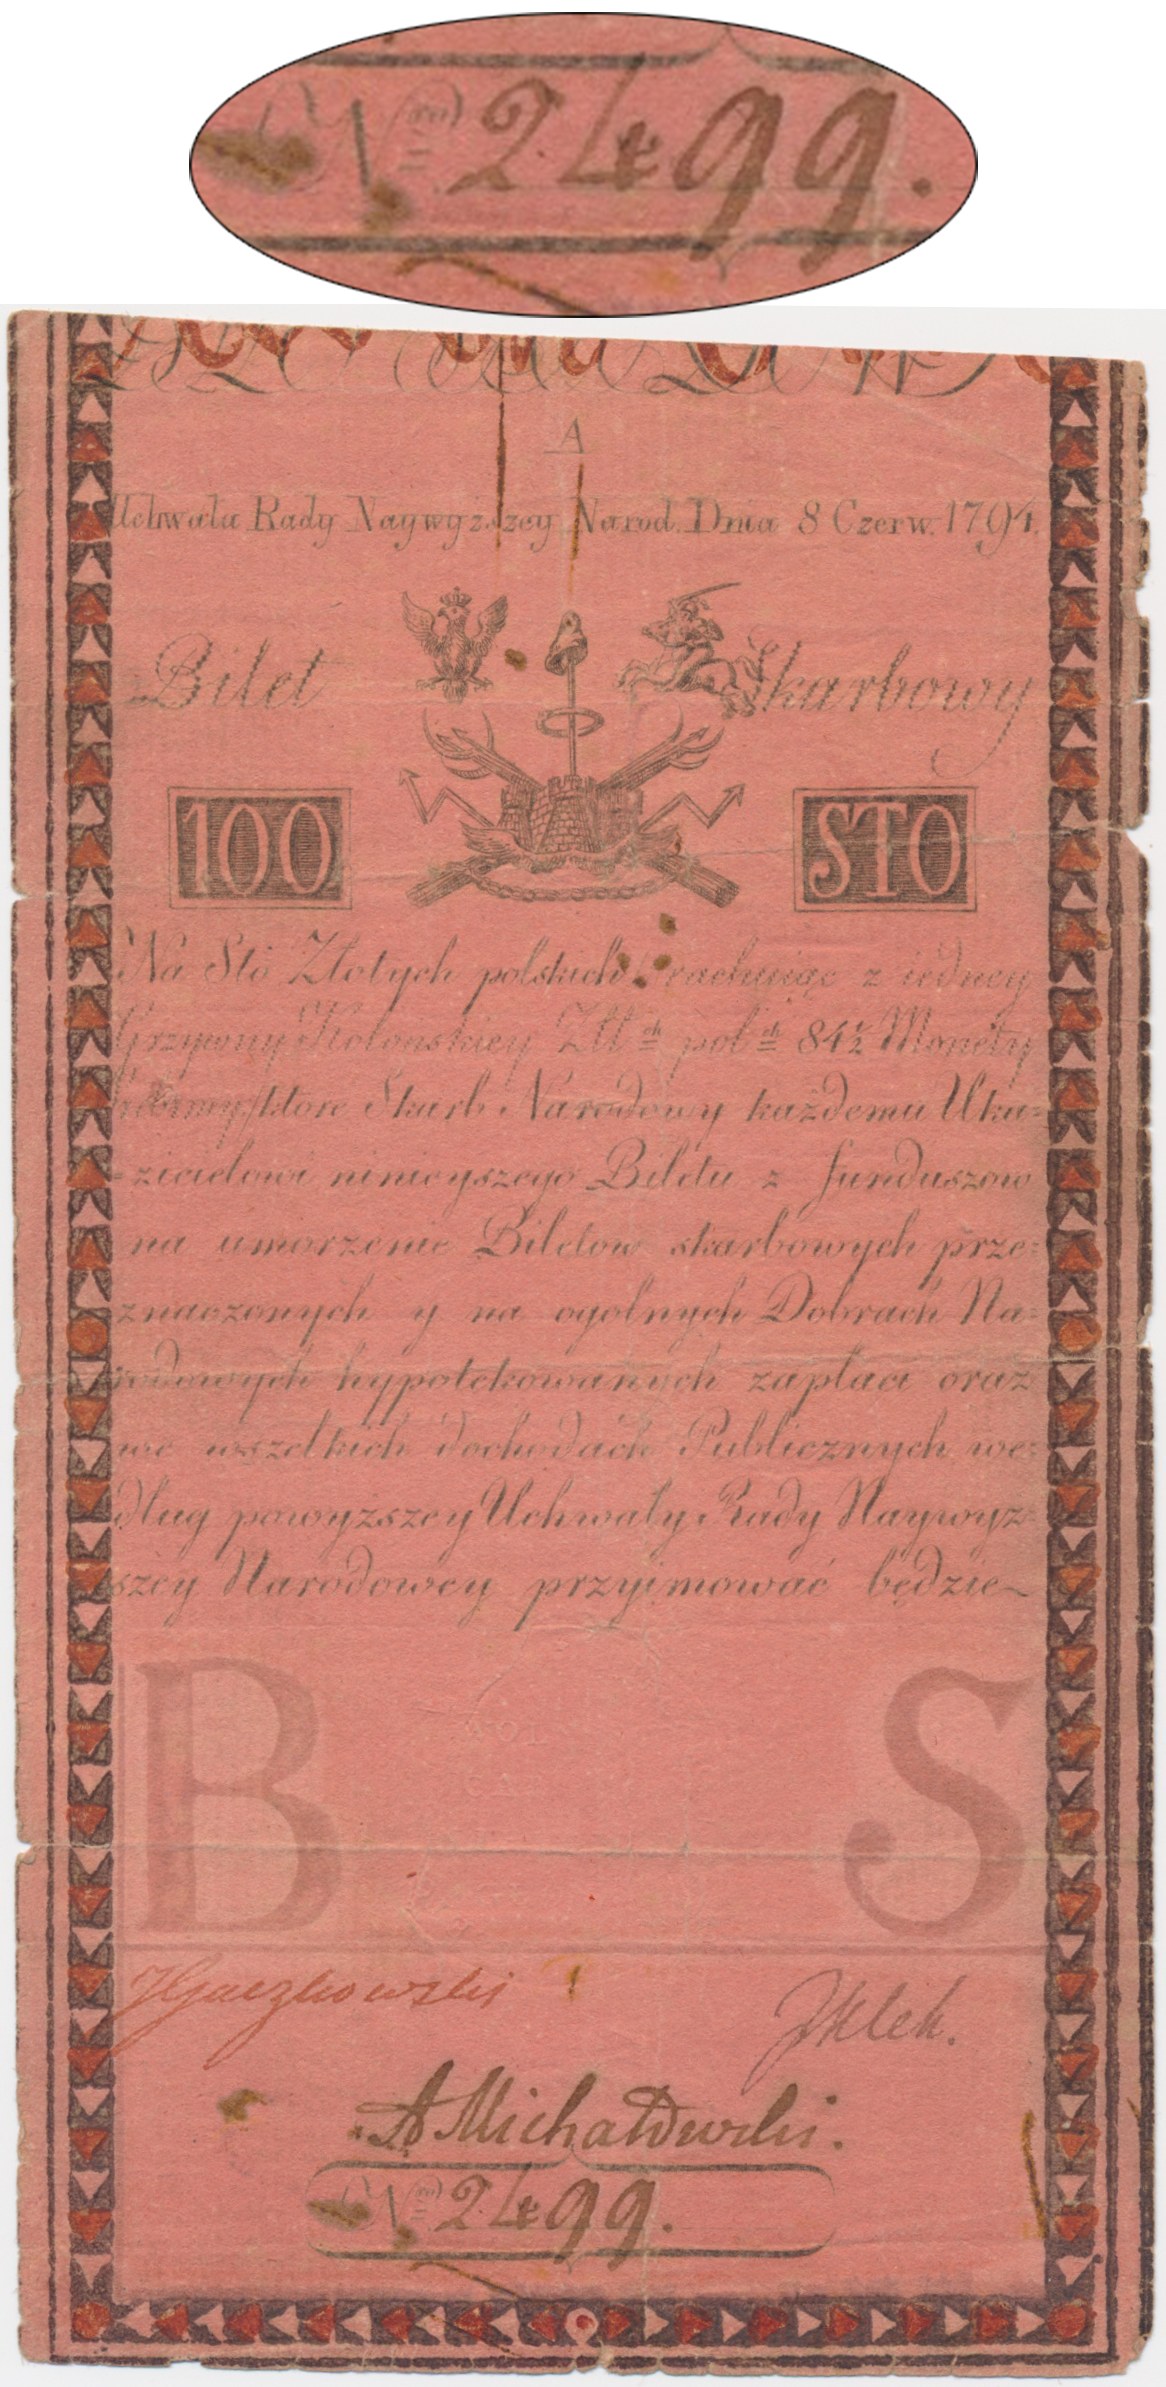 N<sup>ro</sup> 2499.
A
Uchwała Rady Naywyższey Narod. Dnia 8 Czerw. 1794.
Bilet Skarbowy
100 STO
Na Sto Złotych polskich rachuiąc z iedney
Grzywny Kolońskiey Złł ch pol ch 84½ Monety
Srebrney/ktore Skarb Narodowy każdemu Uka=
=zicielowi ninieyszego Biletu z funduszow
na umorzenie Biletow skarbowych prze=
znaczonych y na ogolnych Dobrach Na=
rodowych hypotekowanych zapłaci oraz
we wszelkich dochodach Publicznych we=
dług powyższey Uchwały Rady Naywyż=
szey Narodowey przyimować będzie
B S
JGaczkowski
JKlek.
A Michałowski.
N<sup>ro</sup> 2499.